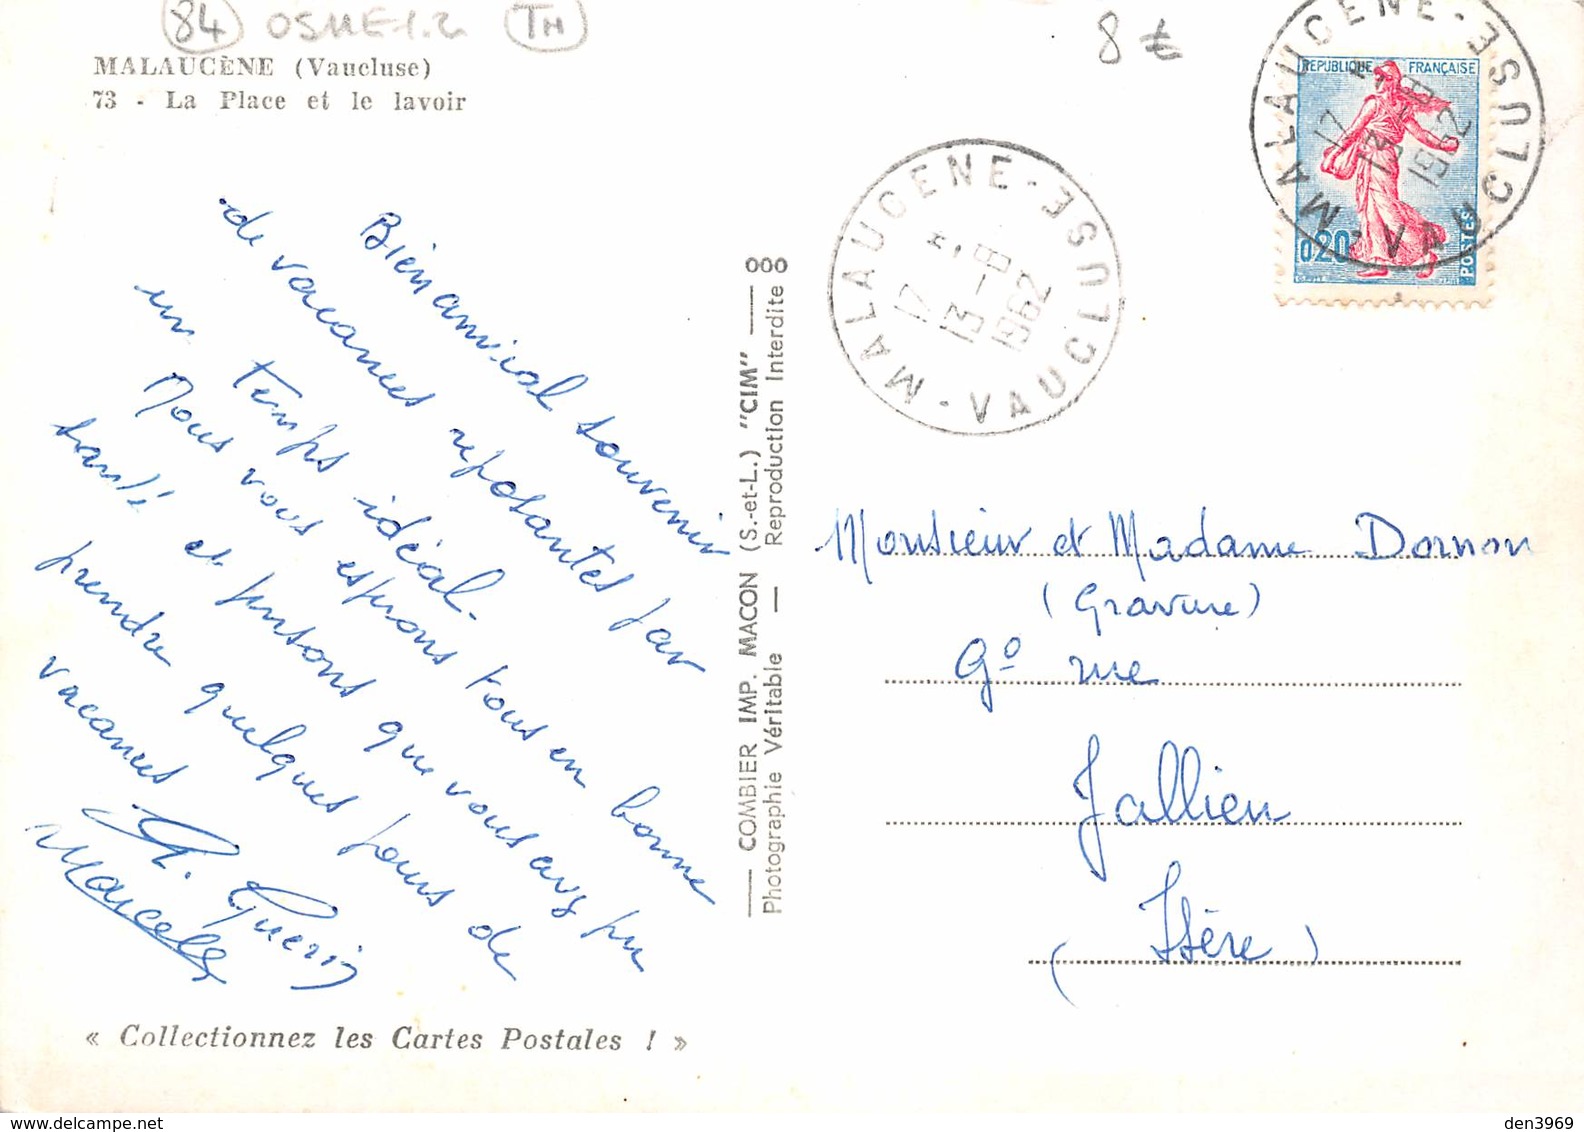 84 TM
8 €
MALAUCÈNE (Vaucluse)
73 - La Place et le lavoir
Bien amical souvenir
de vacances reposantes par
un temps idéal.
Nous vous espérons tous en bonne
santé et pensons que vous avez pu
prendre quelques jours de
vacances
G. Guerin
Marcelle
« Collectionnez les Cartes Postales ! »
COMBIER IMP. MACON (S.-et-L.) "CIM"
Photographie Véritable — Reproduction Interdite
000
MALAUCENE - VAUCLUSE
17 H
13 - 8
1962
REPUBLIQUE FRANÇAISE
0,20
POSTES
MALAUCENE - VAUCLUSE
17 H
13 - 8
1962
Monsieur et Madame Dornon
(Gravure)
Gde rue
Jallieu
(Isère)
den3969